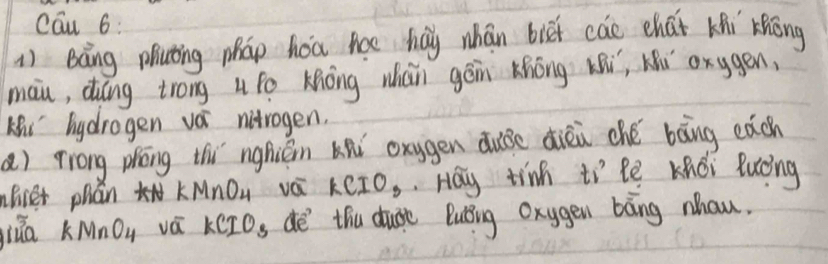 Câu 6:
1) Bằng phương pháp hóa học hãy nhận biết các chất khí không
màu, đựng trong 4 lọ không nhãn gồm không khí, khí oxygen,
khí hydrogen và nitrogen.
2) Trong phòng thí nghiệm khí oxygen được điều chế bằng cách
nhiệt phân KMnO4 và KClO3. Hãy tính tỉ lệ khối lượng
giữa KMnO4 và KClO3 để thu được lượng oxygen bằng nhau.